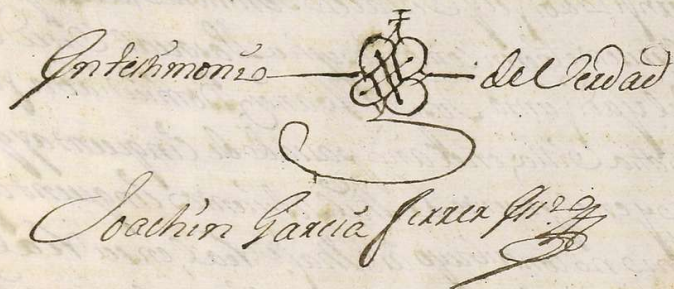 En testimonio de Verdad
Joachin Garcia Ferrer